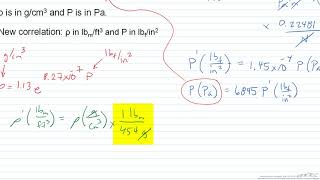 ρ is in g/cm³ and P is in Pa.
New correlation: ρ in lbₘ/ft³ and P in lb_f/in²
g/cm³
lb_f/in²
= 1.13 e 8.27x10⁻⁷ P
ρ'(lbₘ/ft³) = ρ(g/cm³) x 1 lbₘ/454 g
x 0.22481
P'(lb_f/in²) = 1.45x10⁻⁴
P(Pa) = 6895 P'(lb_f/in²)